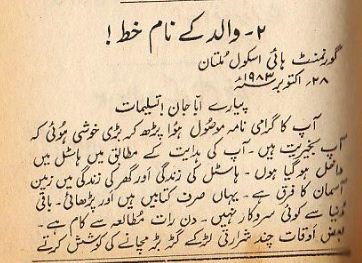 ۲۔ والد کے نام خط !
گورنمنٹ ہائی اسکول مُلتان
۲۸۔ اکتوبر ۱۹۸۳ء
پیارے ابّا جان! تسلیمات
آپ کا گرامی نامہ موصُول ہُوا پڑھ کر بڑی خوشی ہُوئی کہ
آپ بخیریت ہیں۔ آپ کی ہدایت کے مطابق میں ہاسٹل میں
داخل ہو گیا ہوں۔ ہاسٹل کی زندگی اور گھر کی زندگی میں زمین
آسمان کا فرق ہے۔ یہاں صرف کتابیں ہیں اور پڑھائی۔ باقی
دُنیا سے کوئی سروکار نہیں۔ دن رات مُطالعہ سے کام ہے۔
بعض اوقات چند شرارتی لڑکے گڑ بڑ مچانے کی کوشش کرتے